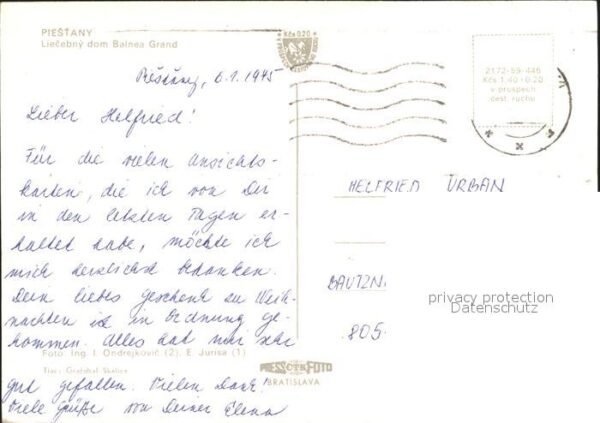 PIEŠŤANY
Liečebný dom Balnea Grand
Kčs 0.20
2172-59-446
Kčs 1,40+0,20
v prospech
cest. ruchu
Piešťany, 6.1.1975
Lieber Helfried!
Für die vielen Ansichts-
karten, die ich von Dir
in den letzten Tagen er-
halten habe, möchte ich
mich herzlichst bedanken.
Dein liebes Geschenk zu Weih-
nachten ist in Ordnung ge-
kommen. Alles hat mir sehr
gut gefallen. Vielen Dank!
Viele Grüße von Deiner Elena
HELFRIED URBAN
BAUTZN
805
privacy protection
Datenschutz
Foto: Ing. I. Ondrejkovič (2), E. Jurisa (1)
Tlač: Grafobal Skalica
PRESSFOTO
BRATISLAVA